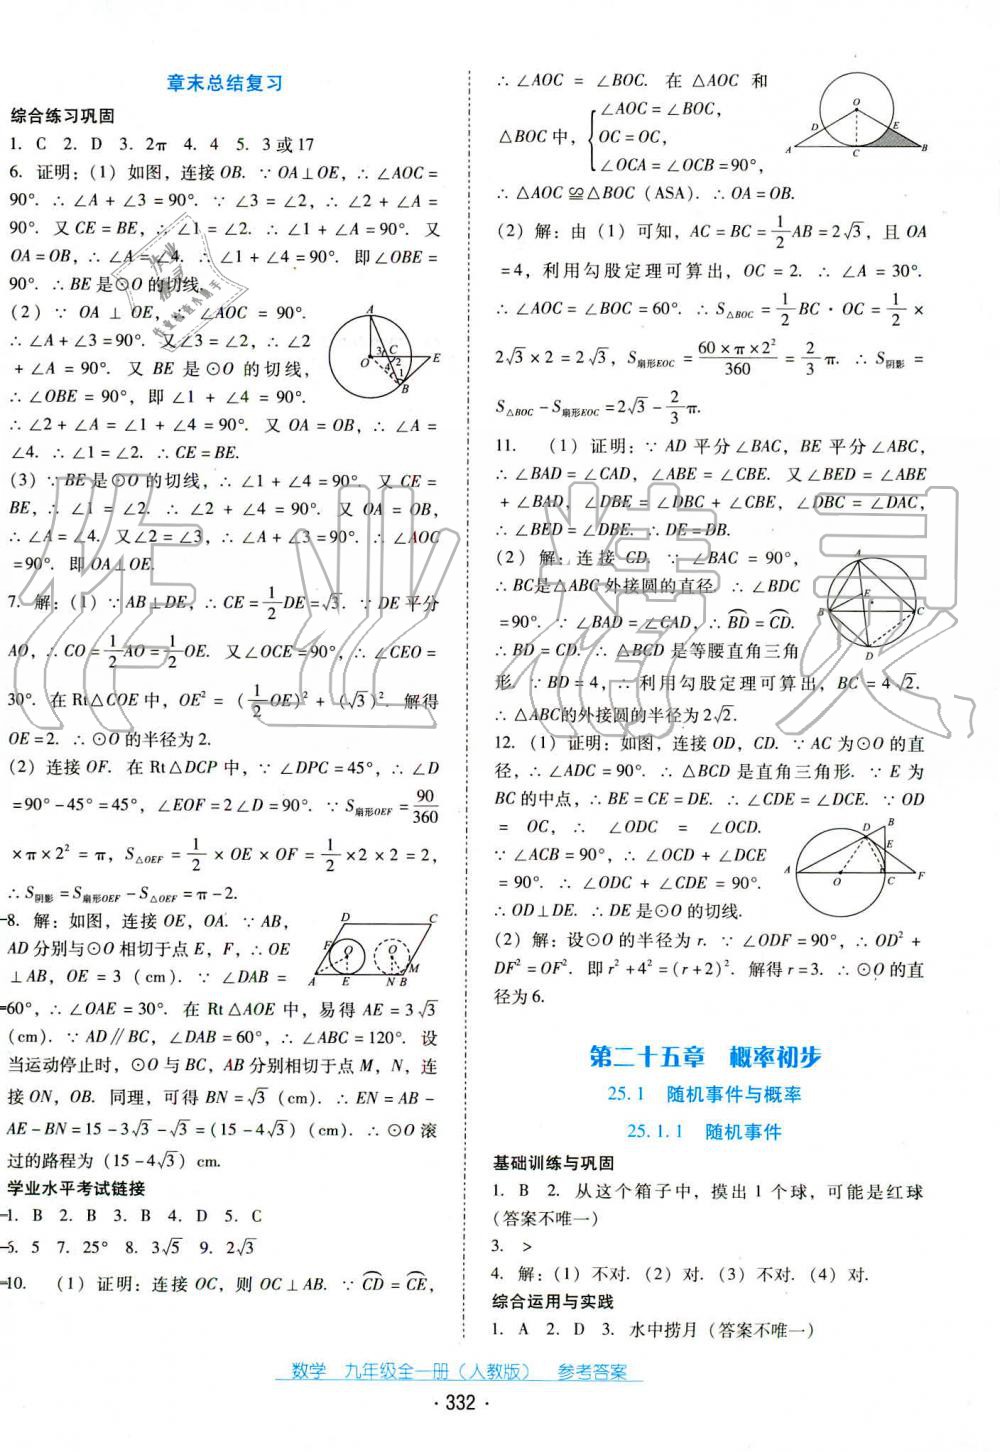 章末总结复习
综合练习巩固
1. C  2. D  3. 2π  4. 4  5. 3或17
6. 证明:(1) 如图,连接OB. ∵OA⊥OE,∴∠AOC=
90°. ∴∠A+∠3=90°. ∵∠3=∠2,∴∠2+∠A=
90°. 又CE=BE,∴∠1=∠2. ∴∠1+∠A=90°. 又
OA=OB,∴∠A=∠4. ∴∠1+∠4=90°. 即∠OBE=
90°. ∴BE是⊙O的切线.
(2) ∵OA⊥OE,∴∠AOC=90°.
∴∠A+∠3=90°. 又∠3=∠2,∴∠2
+∠A=90°. 又BE是⊙O的切线,
∴∠OBE=90°,即∠1+∠4=90°.
∴∠2+∠A=∠1+∠4=90°. 又OA=OB,∴∠A=
∠4. ∴∠1=∠2. ∴CE=BE.
(3) ∵BE是⊙O的切线,∴∠1+∠4=90°. 又CE=
BE,∴∠1=∠2. ∴∠2+∠4=90°. 又OA=OB,
∴∠A=∠4. 又∠2=∠3,∴∠A+∠3=90°. ∴∠AOC
=90°. 即OA⊥OE.
7. 解:(1) ∵AB⊥DE,∴CE=1/2DE=√3. ∵DE平分
AO,∴CO=1/2AO=1/2OE. 又∠OCE=90°,∴∠CEO=
30°. 在Rt△COE中,OE²=(1/2OE)²+(√3)². 解得
OE=2. ∴⊙O的半径为2.
(2) 连接OF. 在Rt△DCP中,∵∠DPC=45°,∴∠D
=90°-45°=45°,∠EOF=2∠D=90°. ∵S扇形OEF=90/360
×π×2²=π,S△OEF=1/2×OE×OF=1/2×2×2=2,
∴S阴影=S扇形OEF-S△OEF=π-2.
8. 解:如图,连接OE,OA. ∵AB,
AD分别与⊙O相切于点E,F,∴OE
⊥AB,OE=3(cm). ∵∠DAB=
60°,∴∠OAE=30°. 在Rt△AOE中,易得AE=3√3
(cm). ∵AD∥BC,∠DAB=60°,∴∠ABC=120°. 设
当运动停止时,⊙O与BC,AB分别相切于点M,N,连
接ON,OB. 同理,可得BN=√3(cm). ∴EN=AB-
AE-BN=15-3√3-√3=(15-4√3)cm. ∴⊙O滚
过的路程为(15-4√3)cm.
学业水平考试链接
1. B  2. B  3. B  4. D  5. C
6. 5  7. 25°  8. 3√5  9. 2√3
10. (1) 证明:连接OC,则OC⊥AB. ∵CD⌒=CE⌒,
∴∠AOC=∠BOC. 在△AOC和
△BOC中,{∠AOC=∠BOC,
OC=OC,
∠OCA=∠OCB=90°,
∴△AOC≌△BOC(ASA). ∴OA=OB.
(2) 解:由(1)可知,AC=BC=1/2AB=2√3,且OA
=4,利用勾股定理可算出,OC=2. ∴∠A=30°.
∴∠AOC=∠BOC=60°. ∴S△BOC=1/2BC·OC=1/2×
2√3×2=2√3,S扇形EOC=60×π×2²/360=2/3π. ∴S阴影=
S△BOC-S扇形EOC=2√3-2/3π.
11. (1) 证明:∵AD平分∠BAC,BE平分∠ABC,
∴∠BAD=∠CAD,∠ABE=∠CBE. 又∠BED=∠ABE
+∠BAD,∠DBE=∠DBC+∠CBE,∠DBC=∠DAC,
∴∠BED=∠DBE. ∴DE=DB.
(2) 解:连接CD. ∵∠BAC=90°,
∴BC是△ABC外接圆的直径. ∴∠BDC
=90°. ∵∠BAD=∠CAD,∴BD⌒=CD⌒.
∴BD=CD. ∴△BCD是等腰直角三角
形. ∵BD=4,∴利用勾股定理可算出,BC=4√2.
∴△ABC的外接圆的半径为2√2.
12. (1) 证明:如图,连接OD,CD. ∵AC为⊙O的直
径,∴∠ADC=90°. ∴△BCD是直角三角形. ∵E为
BC的中点,∴BE=CE=DE. ∴∠CDE=∠DCE. ∵OD
=OC,∴∠ODC=∠OCD.
∵∠ACB=90°,∴∠OCD+∠DCE
=90°. ∴∠ODC+∠CDE=90°.
∴OD⊥DE. ∴DE是⊙O的切线.
(2) 解:设⊙O的半径为r. ∵∠ODF=90°,∴OD²+
DF²=OF². 即r²+4²=(r+2)². 解得r=3. ∴⊙O的直
径为6.
第二十五章 概率初步
25.1 随机事件与概率
25.1.1 随机事件
基础训练与巩固
1. B  2. 从这个箱子中,摸出1个球,可能是红球
(答案不唯一)
3. >
4. 解:(1) 不对. (2) 对. (3) 不对. (4) 对.
综合运用与实践
1. A  2. D  3. 水中捞月(答案不唯一)
数学 九年级全一册(人教版) 参考答案
· 332 ·